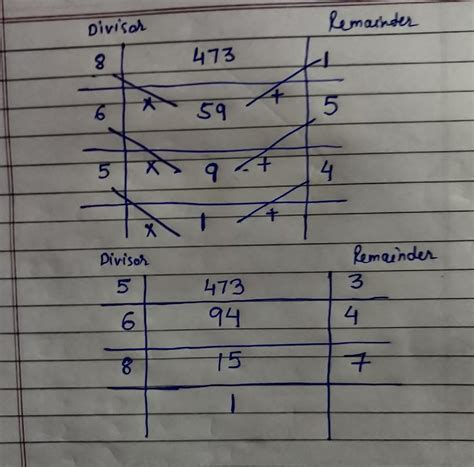 Divisor Remainder
8 473 1
× +
6 59 5
× +
5 9 4
× +
1
Divisor Remainder
5 473 3
6 94 4
8 15 7
1